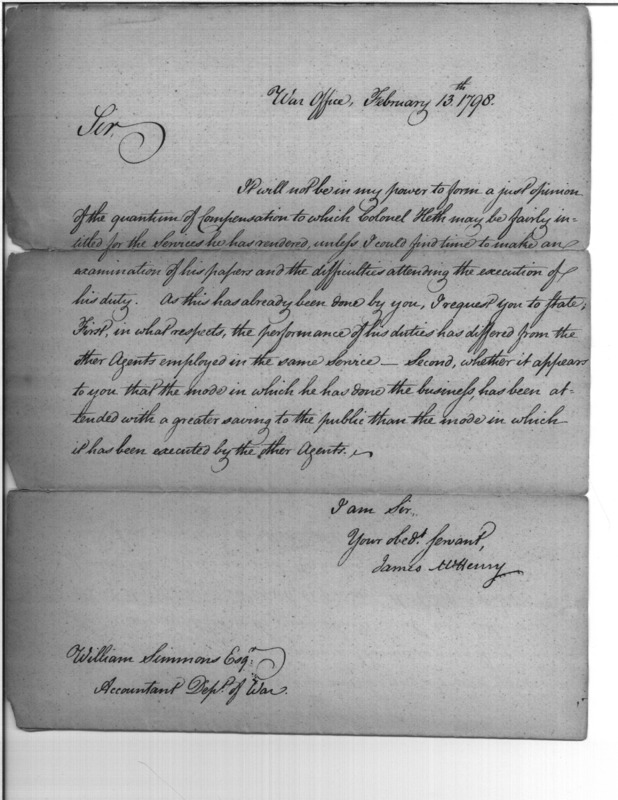 War Office, February 13.th 1798.
Sir,
It will not be in my power to form a just opinion
of the quantum of Compensation to which Colonel Heth may be fairly in=
titled for the Services he has rendered, unless I could find time to make an
examination of his papers and the difficulties attending the execution of
his duty. As this has already been done by you, I request you to State,
First, in what respects, the performance of his duties has differed from the
other Agents employed in the same Service — Second, whether it appears
to you that the mode in which he has done the business, has been at=
tended with a greater saving to the public than the mode in which
it has been executed by the other Agents.
I am Sir,
Your obed.t Servant,
James McHenry
William Simmons Esq.r
Accountant Dep.t of War.